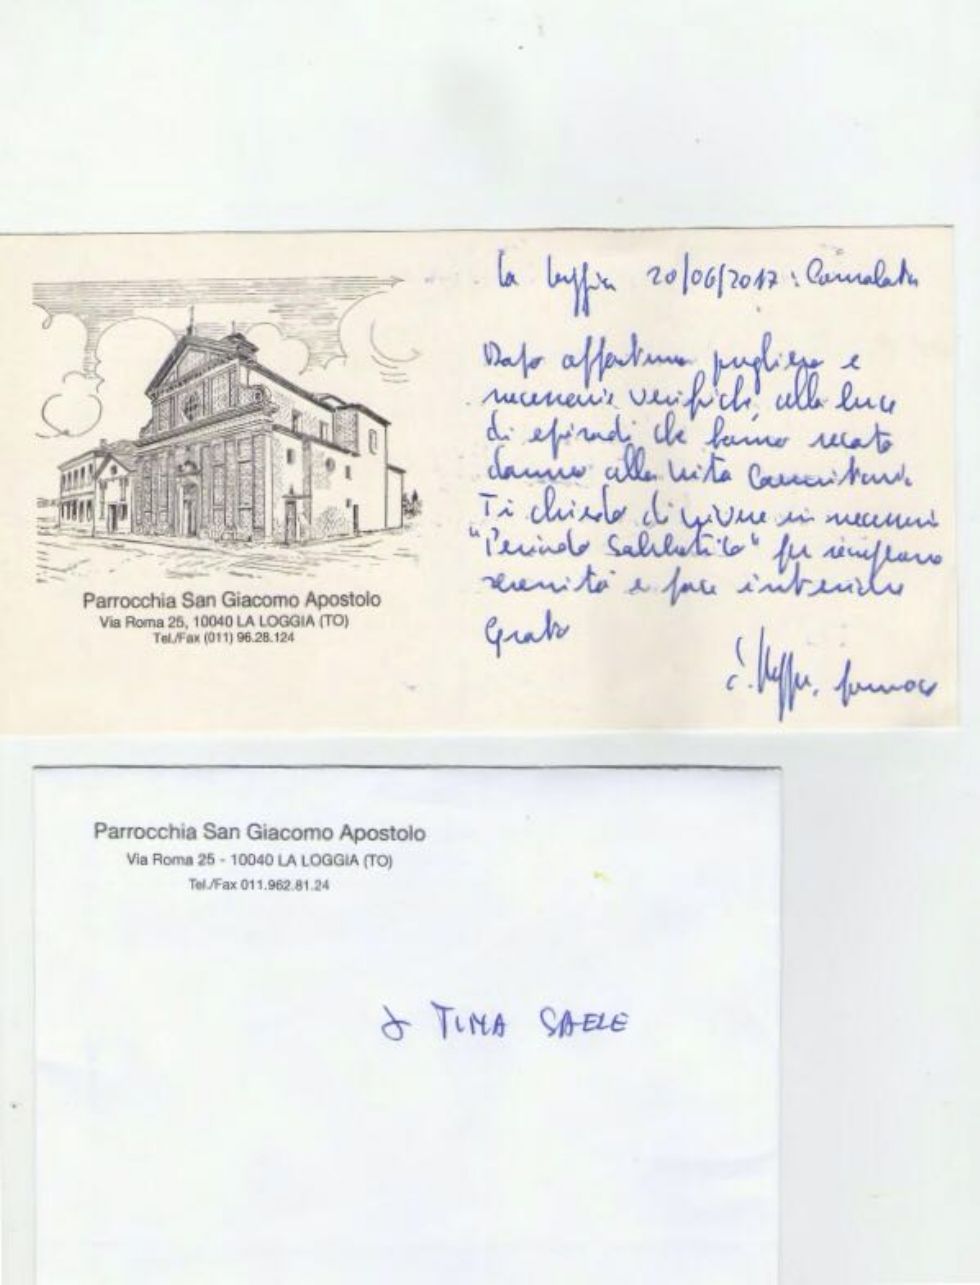 La Loggia 20/06/2017:
Parrocchia San Giacomo Apostolo
Via Roma 25, 10040 LA LOGGIA (TO)
Tel./Fax (011) 96.28.124
Dopo affettuosa preghiera e
necessarie verifiche, alla luce
di episodi che hanno recato
danno alla vita
Ti chiedo di vivere un necessario
"Periodo Sabbatico" per recuperare
serenità e pace interiore
Grato
Parrocchia San Giacomo Apostolo
Via Roma 25 - 10040 LA LOGGIA (TO)
Tel./Fax 011.962.81.24
TINA SAELE